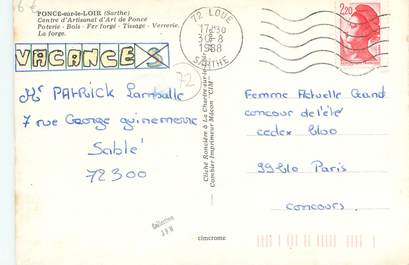 6 €
PONCE-sur-le-LOIR (Sarthe)
Centre d'Artisanat d'Art de Poncé
Poterie - Bois - Fer forgé - Tissage - Verrerie.
La forge.
VACANCES
72
72 LOUE
17H30
30-8
1988
SARTHE
2,20
Mr PATRICK Lamballe
7 rue George guinemerre
Sablé
72300
Cliché Roncière à La Chartre-sur-le-
Combier Imprimeur Mâcon "CIM"
Femme Actuelle Grand
concour de l'été
cedex 6100
99610 Paris
Concours
Collection
cimcrome